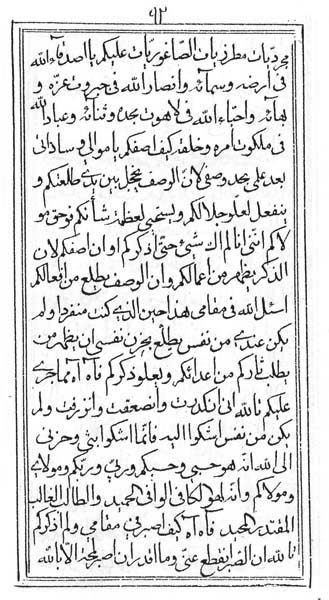 ٩٢
في ارضه وسمائه وانصار الله في جبروت عزه و
بهائه واحباء الله في لاهوت مجده وثنائه وعباد الله
في ملكوت امره وخلقه كيف اصفكم يا موالي وساداتي
بعد علمي بحد وصفي لان الوصف يخجل بين يدي طلعتكم و
ينفعل لعلو جلالكم ويستحيي لعظمة شأنكم فوحق مو
لاكم انني انا لم اك شيئ حتى اذكركم او ان اصفكم لان
الذكر يظهر من اعمالكم وان الوصف يطلع من افعالكم
اسئل الله في مقامي هذا حين الذي كنت منفردا ولم
يكن عندي من نفس يطلع بحزن نفسي ان يظهر من
يطلب ثاركم من اعدائكم ويعلو ذكركم فآه آه مما جرى
عليكم تالله اني انكدرت وانصعقت وانزفت ولم
يكن من نفس اشكوا اليه فانما اشكوا بثي وحزني
الى الله انه هو حسبي وحسبكم وربي وربكم ومولاي
ومولاكم وانه لهو الكافي الوافي الحميد والطالب الغالب
المقتدر المجيد فآه آه كيف اصبر في مقامي ولم اذكركم
تالله ان الصبر يقطع عني وما اقدر ان اصبر لمحة الا بالله